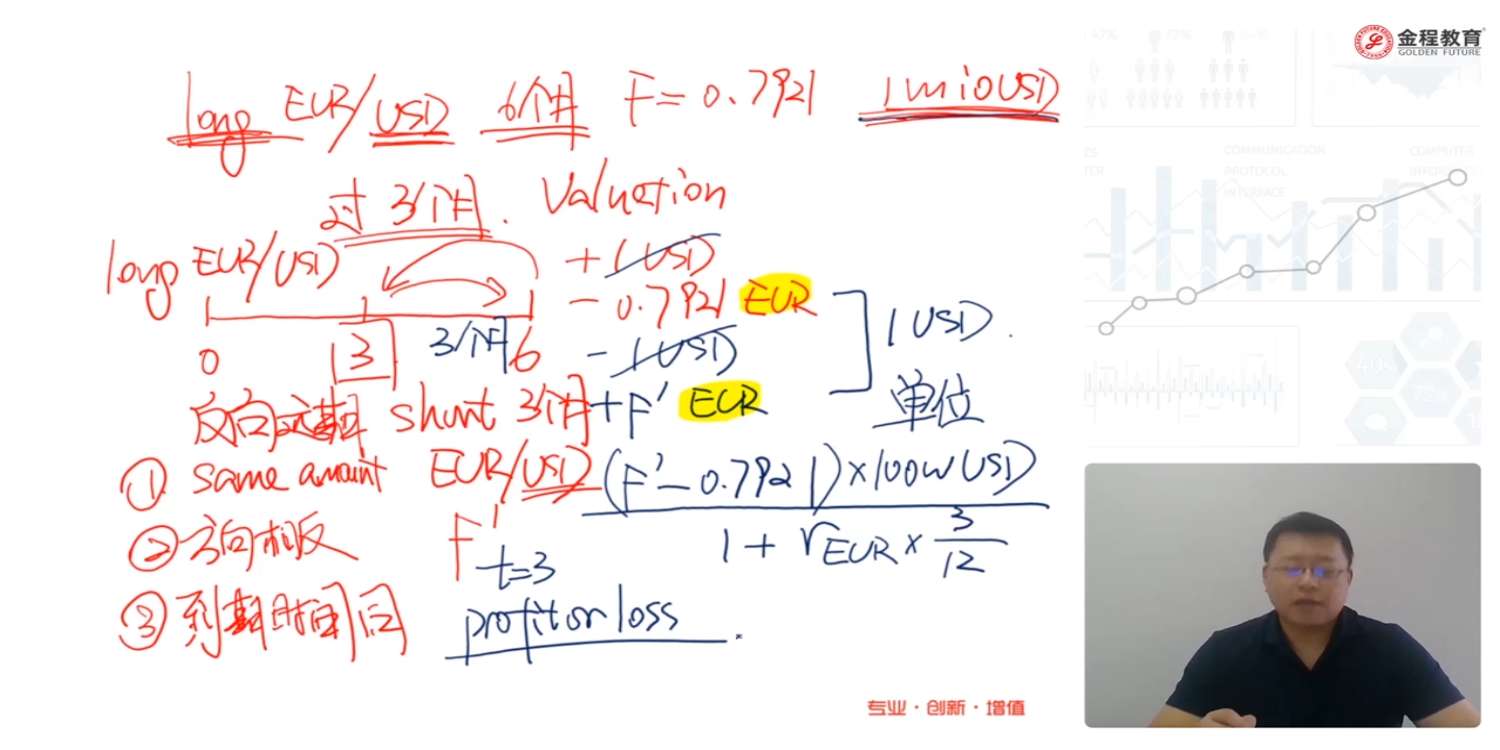 金程教育
GOLDEN FUTURE
long EUR/USD 6个月 F=0.7921 1mioUSD
对3个月. Valuation
long EUR/USD
+1USD
-0.7921 EUR
0 3 3个月 6
-1USD
1USD.
单位
反向远期 short 3个月 +F' EUR
① same amount EUR/USD
(F'-0.7921)×100WUSD
1+rEUR×3/12
② 方向相反 F' t=3
③ 到期时间同 profit or loss
COMMUNICATION
PROTOCOL
INTERFACE
专业·创新·增值